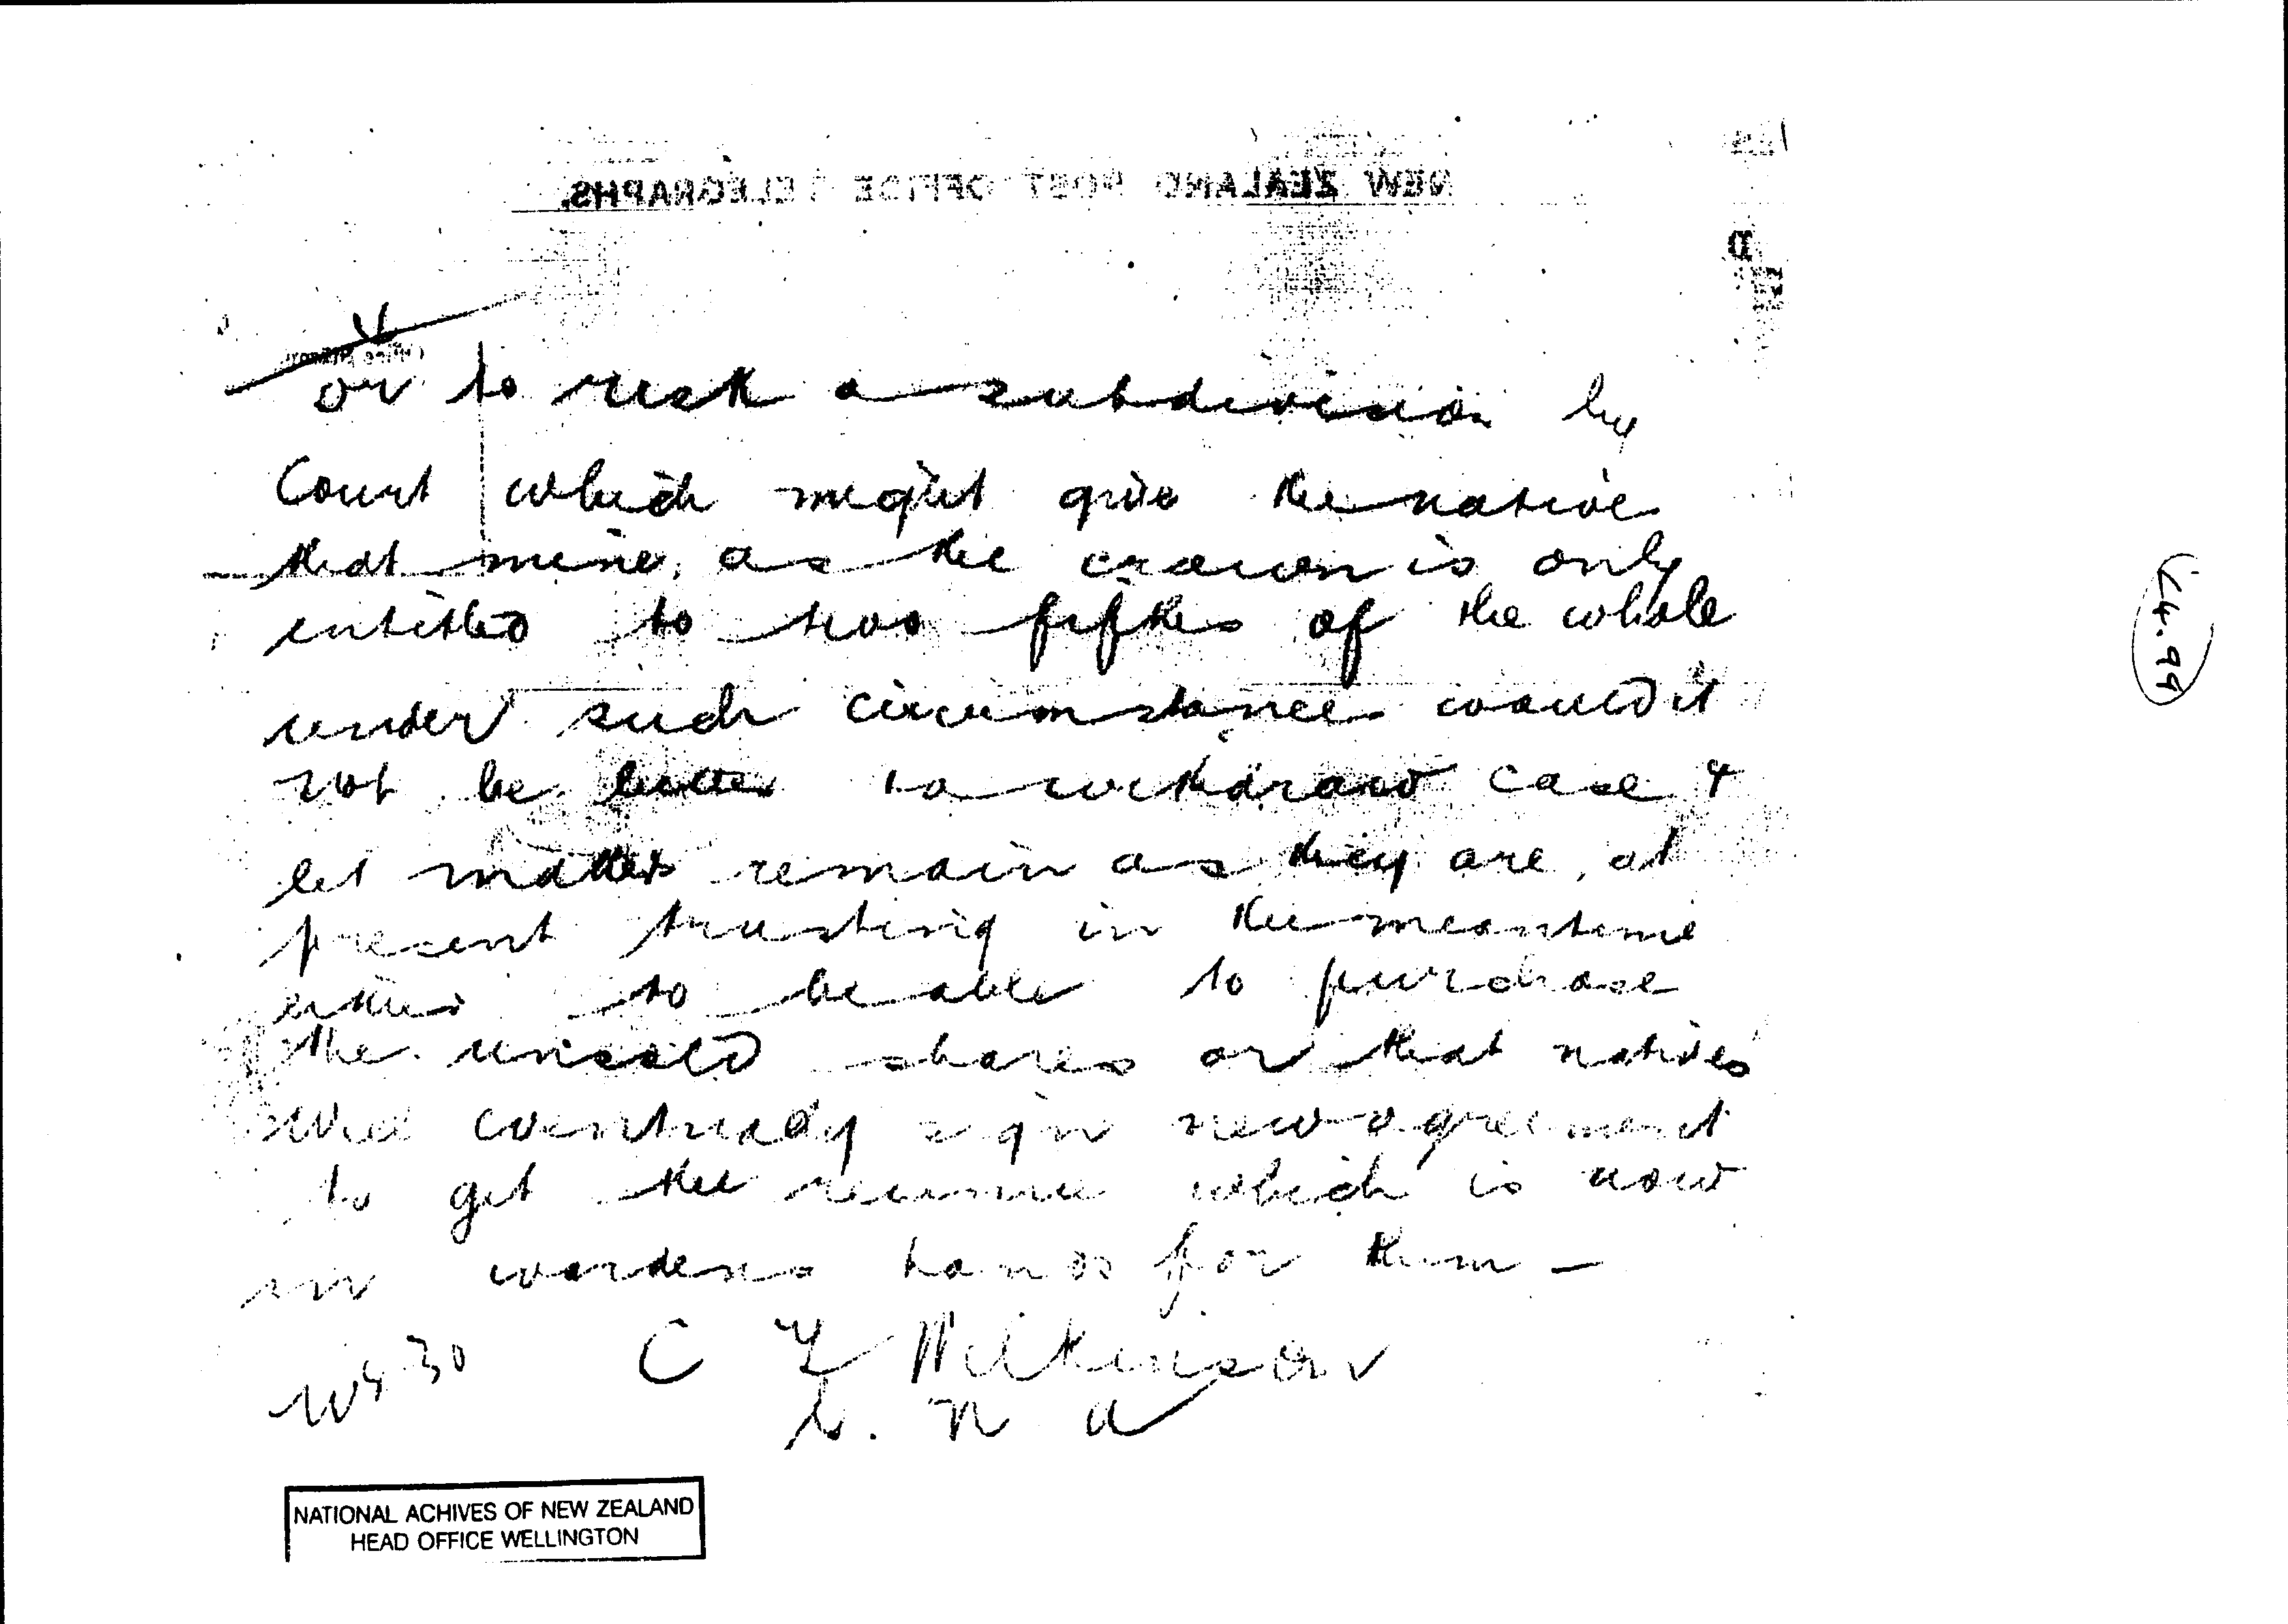 NEW ZEALAND POST OFFICE TELEGRAPHS.
or to risk a subdivision by
Court which might give the native
that mine, as the crown is only
entitled to two fifths of the whole
under such circumstances would it
not be better to withdraw case &
let matters remain as they are, at
present trusting in the meantime
either to be able to purchase
the unsold shares or that natives
will eventually sign new agreement
to get the revenue which is now
in wardens hands for them -
C Wilkinson
N A
NATIONAL ACHIVES OF NEW ZEALAND
HEAD OFFICE WELLINGTON